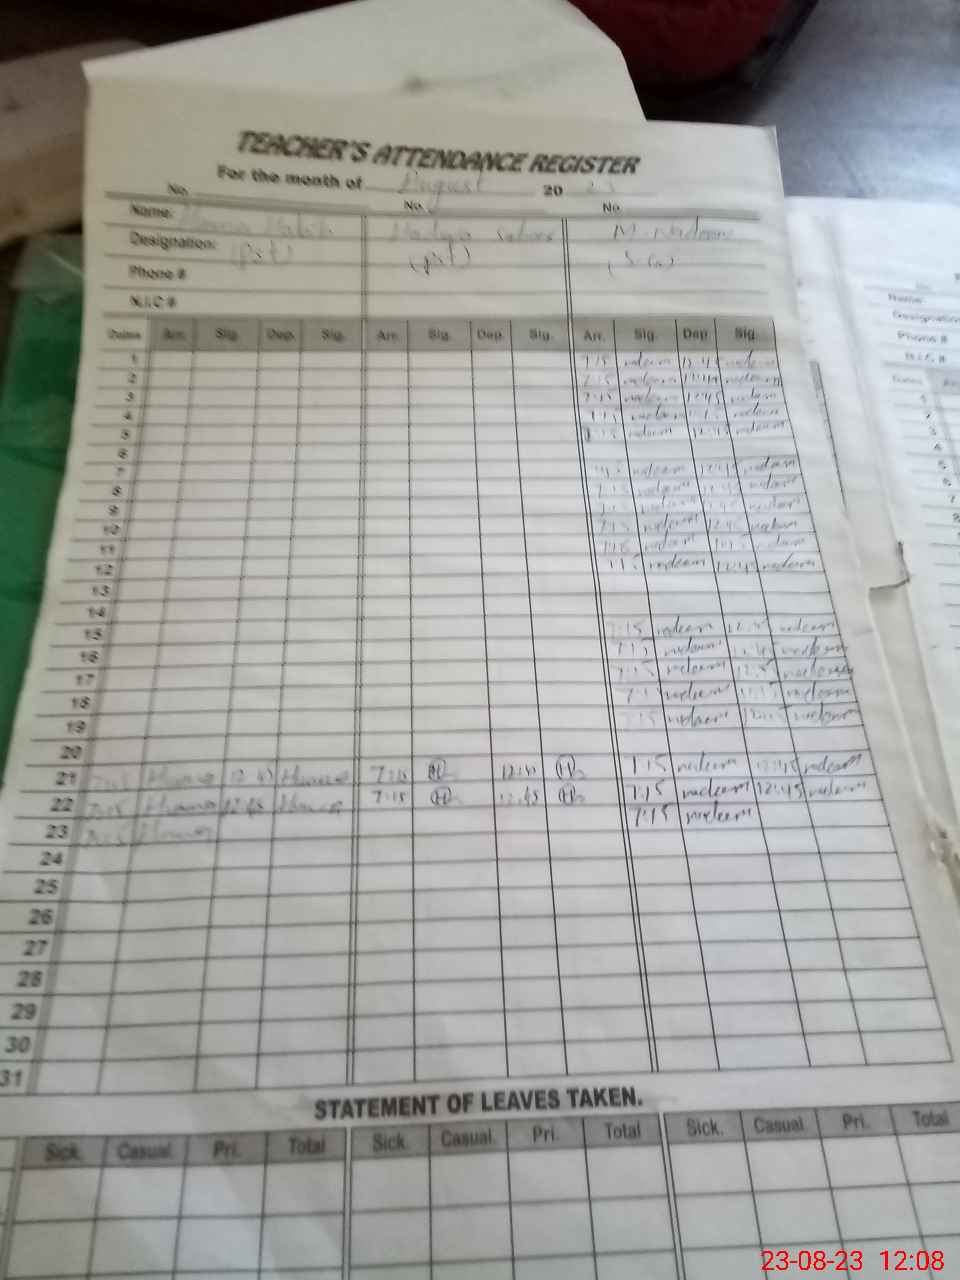 TEACHER'S ATTENDANCE REGISTER
For the month of August 20 23
No. No. No
Name: M. Nadeem
Designation: (pst) (pst)
Phone #
N.I.C #
Dates Arr. Sig. Dep. Sig. Arr. Sig. Dep. Sig. Arr. Sig. Dep. Sig.
1 7:15 nadeem 12:45 nadeem
2 7:15 nadeem nadeem
3 7:15 nadeem 12:45 nadeem
4 7:15 nadeem 12:45 nadeem
5 7:15 nadeem 12:45 nadeem
6
7 7:15 nadeem 12:45 nadeem
8 7:15 nadeem 12:45 nadeem
9 7:15 nadeem 12:45 nadeem
10 7:15 nadeem 12:45 nadeem
11 7:15 nadeem 12:45 nadeem
12 7:15 nadeem 12:45 nadeem
13
14
15 7:15 nadeem 12:45 nadeem
16 7:15 nadeem 12:45 nadeem
17 7:15 nadeem 12:45 nadeem
18 7:15 nadeem 12:45 nadeem
19 7:15 nadeem 12:45 nadeem
20
21 7:15 12:45 7:15 12:45 7:15 nadeem 12:45 nadeem
22 7:15 12:45 7:15 12:45 7:15 nadeem 12:45 nadeem
23 7:15 7:15 nadeem
24
25
26
27
28
29
30
31
STATEMENT OF LEAVES TAKEN.
Sick. Casual. Pri. Total Sick. Casual. Pri. Total Sick. Casual. Pri. Total
Name:
Designation
Phone #
N.I.C #
Dates
1
2
3
4
5
6
7
8
23-08-23 12:08